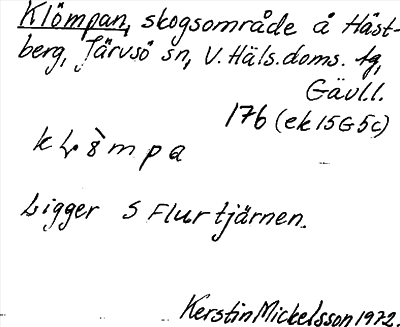 Klömpan, skogsområde å Häst-
berg, Järvsö sn, V. Häls. doms. tg,
Gävl.l.
176 (ek 15G5c)
Ligger S Flurtjärnen.
Kerstin Mickelsson 1972.